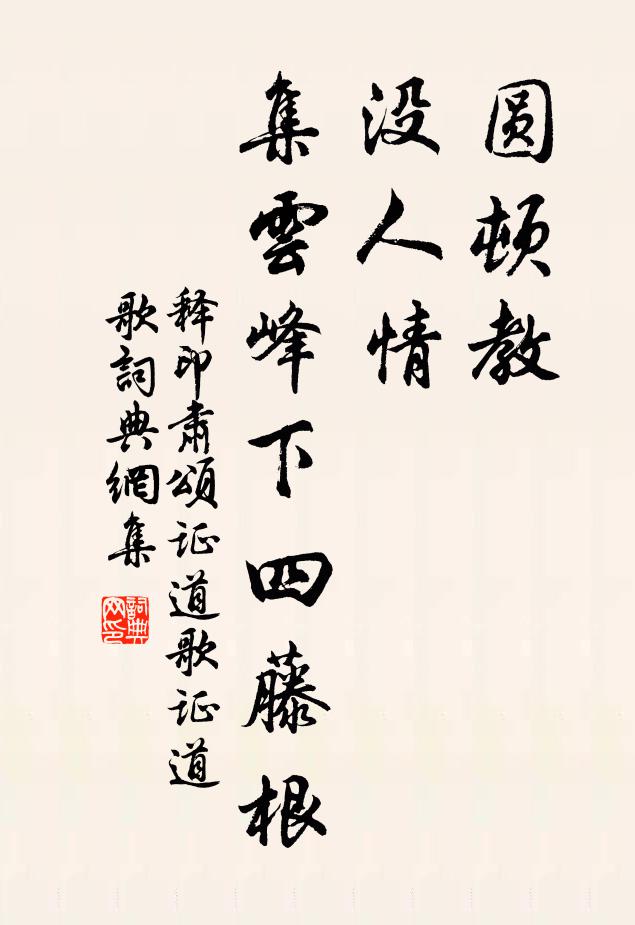 圆顿教
没人情
集雲峰下四藤根
释印肃颂证道歌证道
歌詞典網集
詞典网印